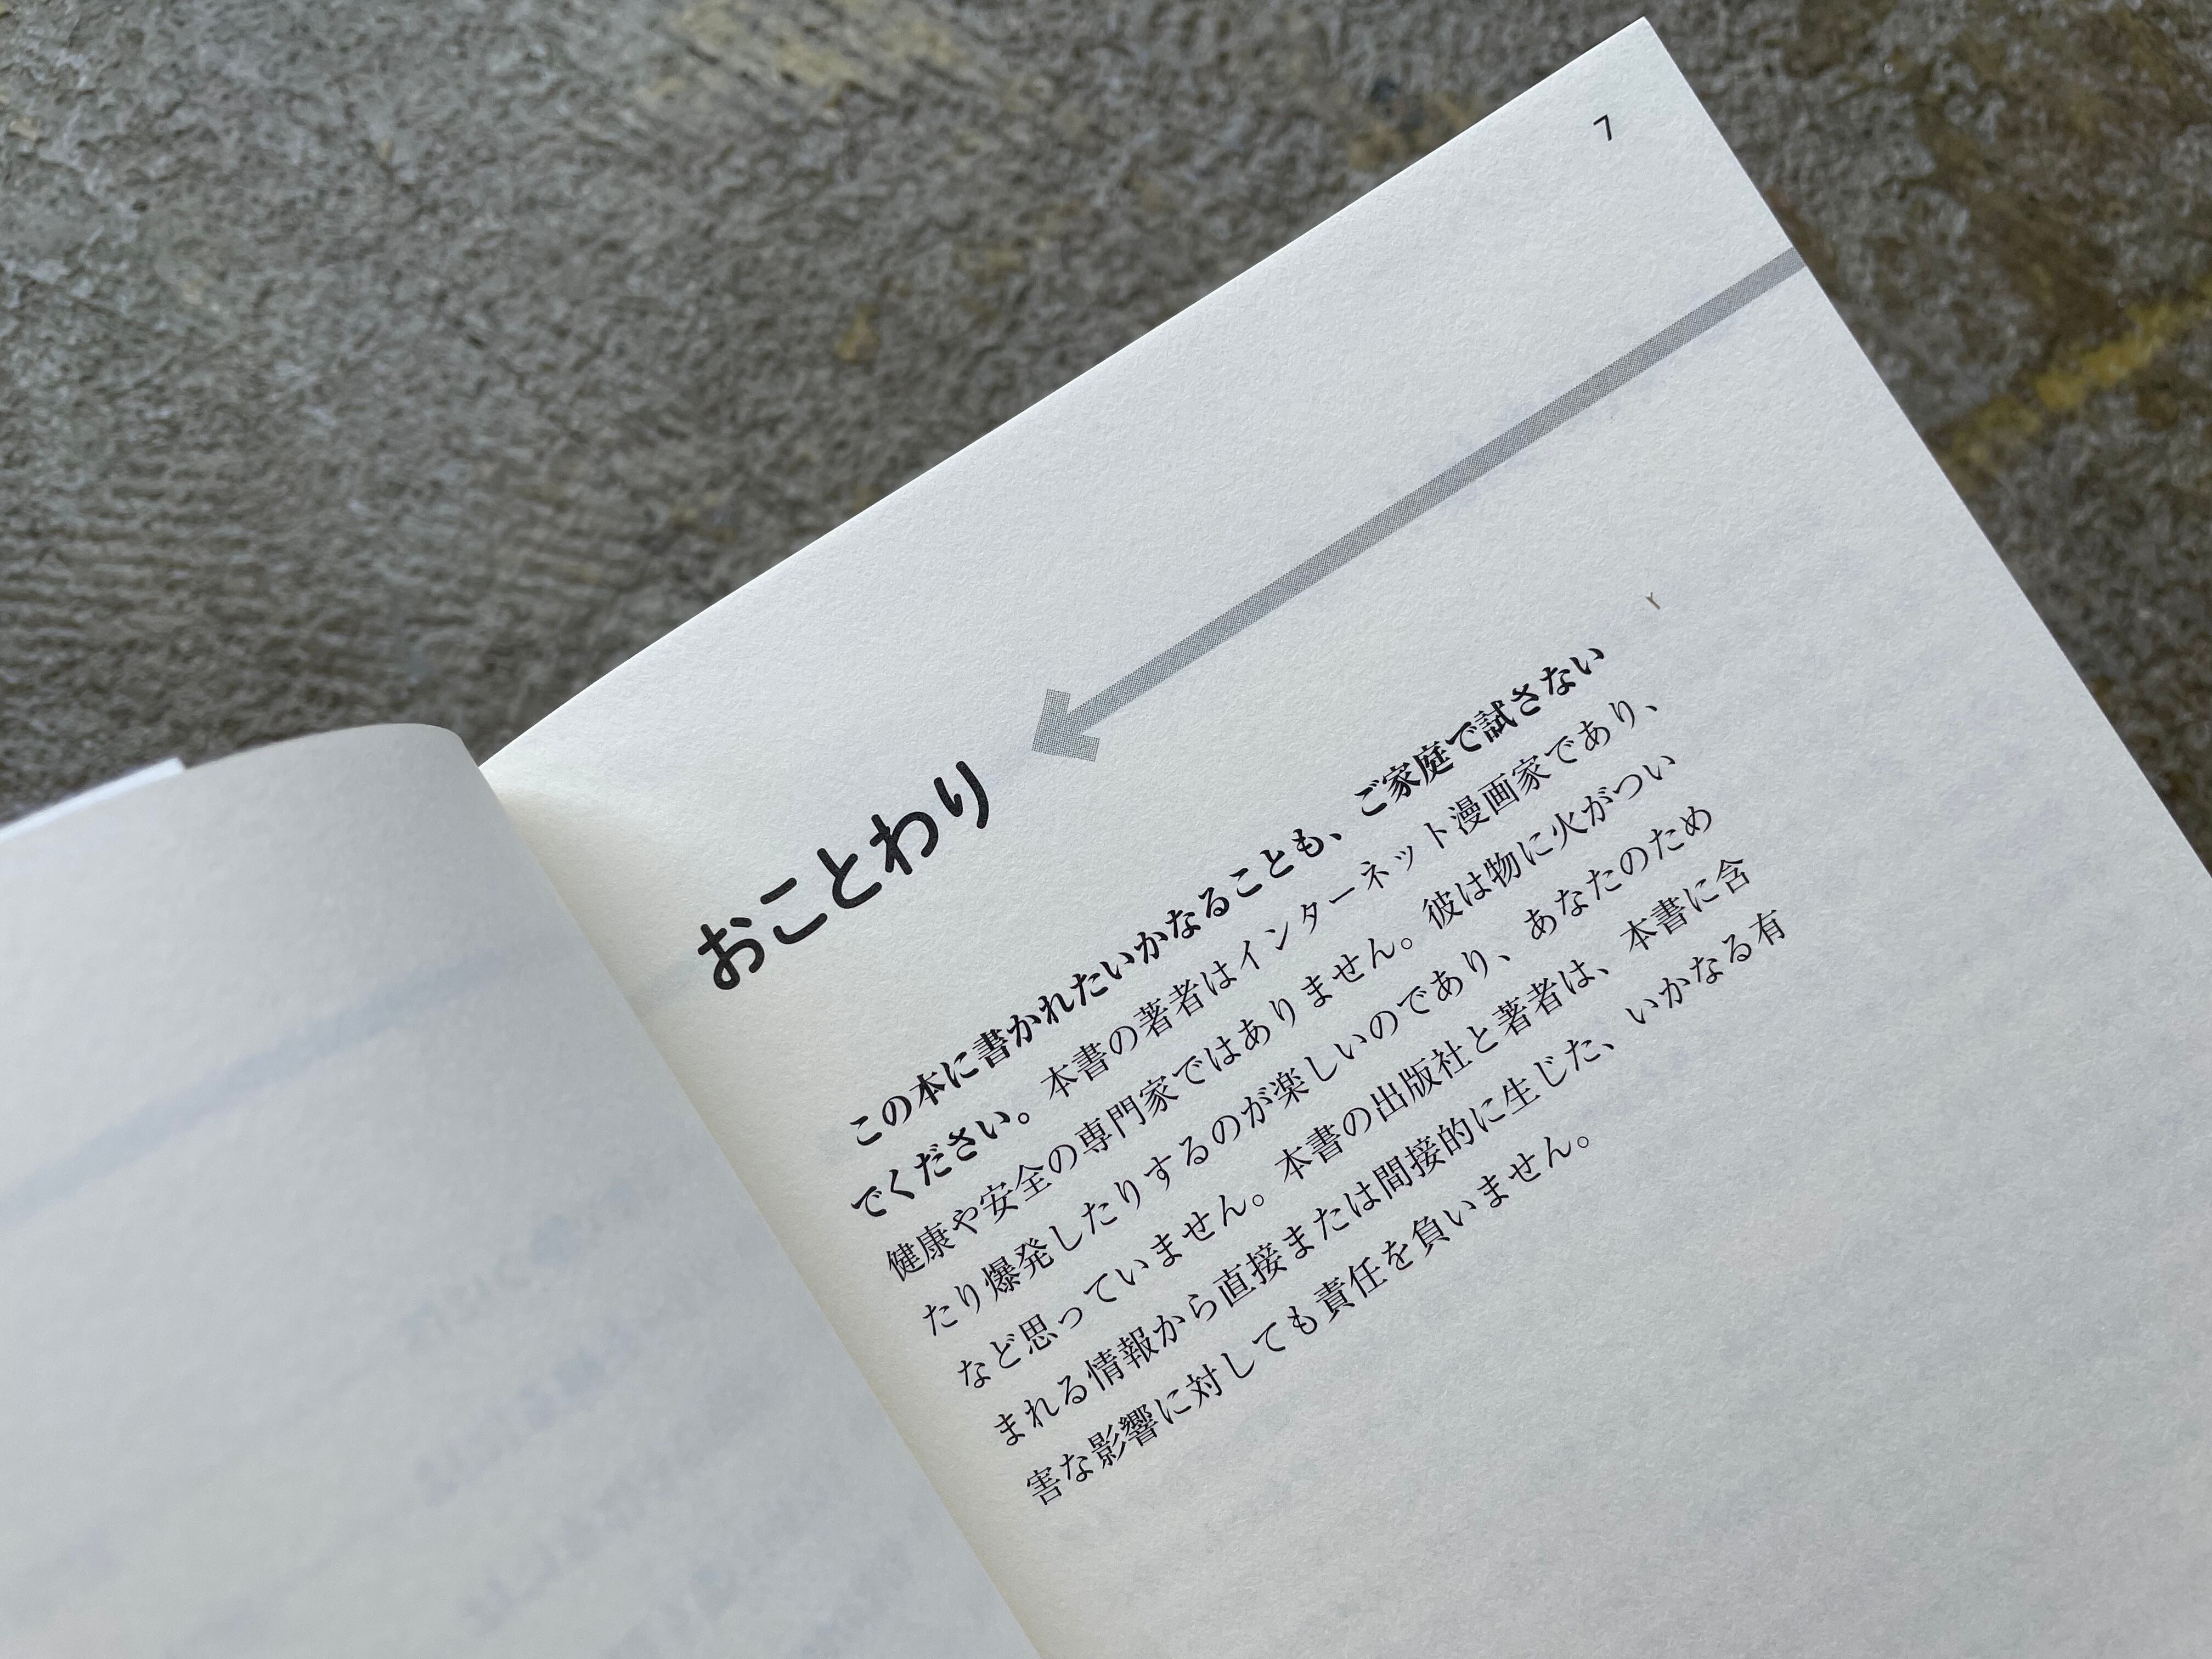 7
おことわり
この本に書かれたいかなることも、ご家庭で試さない
でください。本書の著者はインターネット漫画家であり、
健康や安全の専門家ではありません。彼は物に火がつい
たり爆発したりするのが楽しいのであり、あなたのため
など思っていません。本書の出版社と著者は、本書に含
まれる情報から直接または間接的に生じた、いかなる有
害な影響に対しても責任を負いません。